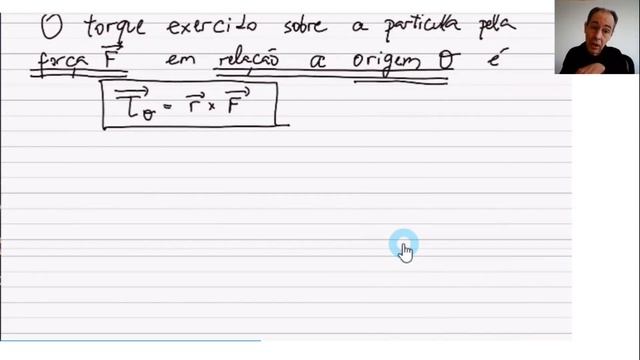 O torque exercido sobre a partícula pela
força F⃗ em relação a origem O é
τ⃗₀ = r⃗ × F⃗